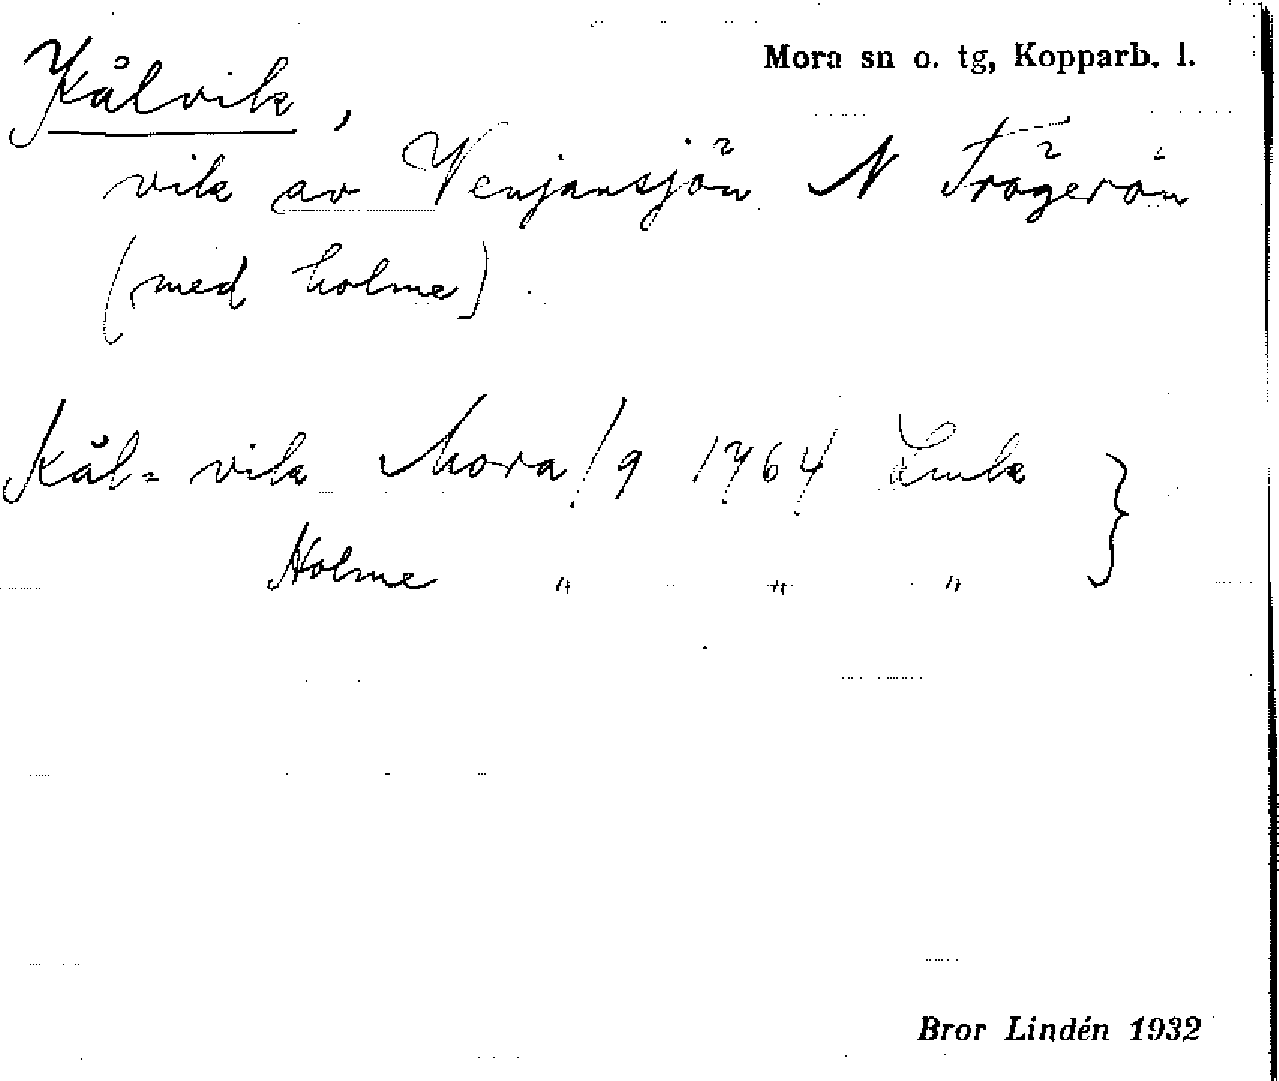 Mora sn o. tg, Kopparb. l.
Kålvik,
vik av Venjansjön N Trägerön
(med holme).
Kål= vik Mora/9 1764 Lmk }
Holme " " "
Bror Lindén 1932